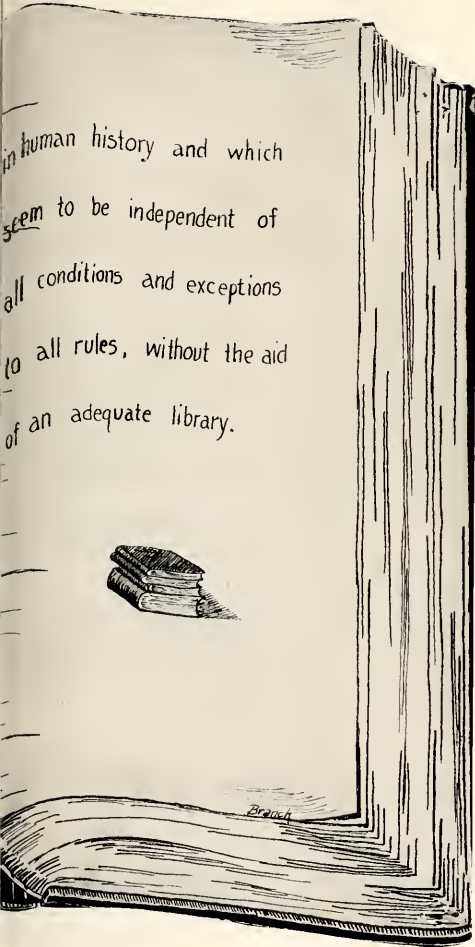 in human history and which
seem to be independent of
all conditions and exceptions
to all rules, without the aid
of an adequate library.
Branch